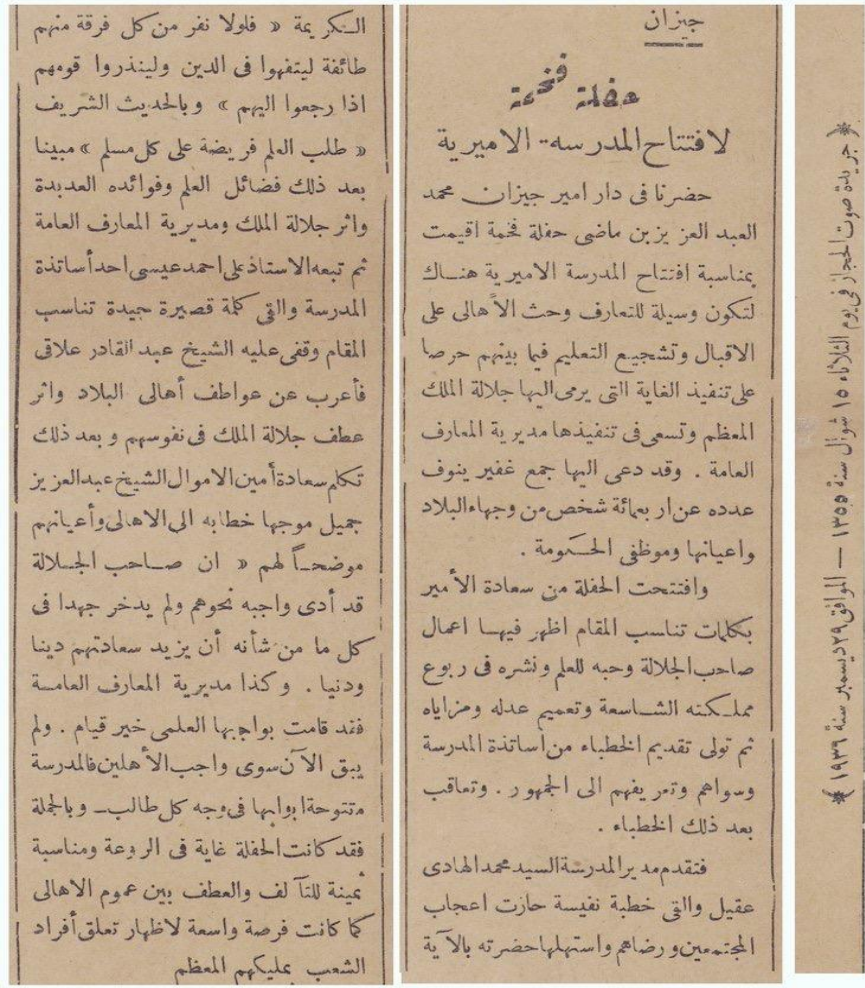 جيزان
حفلة فخمة
لافتتاح المدرسة الاميرية
حضرنا فى دار امير جيزان محمد
العبد العزيز بن ماضى حفلة فخمة اقيمت
بمناسبة افتتاح المدرسة الاميرية هناك
لتكون وسيلة للتعارف وحث الأهالى على
الاقبال وتشجيع التعليم فيما بينهم حرصا
على تنفيذ الغاية التى يرمى اليها جلالة الملك
المعظم وتسعى فى تنفيذها مديرية المعارف
العامة . وقد دعى اليها جمع غفير ينوف
عدده عن اربعمائة شخص من وجهاء البلاد
واعيانها وموظفى الحكومة .
وافتتحت الحفلة من سعادة الأمير
بكلمات تناسب المقام اظهر فيها اعمال
صاحب الجلالة وحبه للعلم ونشره فى ربوع
مملكته الشاسعة وتعميم عدله ومزاياه
ثم تولى تقديم الخطباء من اساتذة المدرسة
وسواهم وتعريفهم الى الجمهور . وتعاقب
بعد ذلك الخطباء .
فتقدم مدير المدرسة السيد محمد الهادى
عقيل والقى خطبة نفيسة حازت اعجاب
المجتمعين ورضاهم واستهلها حضرته بالآية
الكريمة « فلولا نفر من كل فرقة منهم
طائفة ليتفهوا فى الدين ولينذروا قومهم
اذا رجعوا اليهم » وبالحديث الشريف
« طلب العلم فريضة على كل مسلم » مبينا
بعد ذلك فضائل العلم وفوائده العديدة
واثر جلالة الملك ومديرية المعارف العامة
ثم تبعه الاستاذ على احمد عيسى احد أساتذة
المدرسة والقى كلمة قصيرة جيدة تناسب
المقام وقفى عليه الشيخ عبد القادر علاقى
فأعرب عن عواطف أهالى البلاد واثر
عطف جلالة الملك فى نفوسهم وبعد ذلك
تكلم سعادة أمين الاموال الشيخ عبد العزيز
جميل موجها خطابه الى الاهالى وأعيانهم
موضحاً لهم « ان صاحب الجلالة
قد أدى واجبه نحوهم ولم يدخر جهدا فى
كل ما من شأنه أن يزيد سعادتهم دينا
ودنيا . وكذا مديرية المعارف العامة
فقد قامت بواجبها العلمى خير قيام . ولم
يبق الآن سوى واجب الأهلين فالمدرسة
متتوحة ابوابها فى وجه كل طالب ـ وبالجملة
فقد كانت الحفلة غاية فى الروعة ومناسبة
ثمينة للتآلف والعطف بين عموم الاهالى
كما كانت فرصة واسعة لاظهار تعلق أفراد
الشعب بمليكهم المعظم
﴿ جريدة صوت الحجاز فى يوم الثلاثاء ١٥ شوال سنة ١٣٥٥ — الموافق ٢٩ ديسمبر سنة ١٩٣٦ ﴾